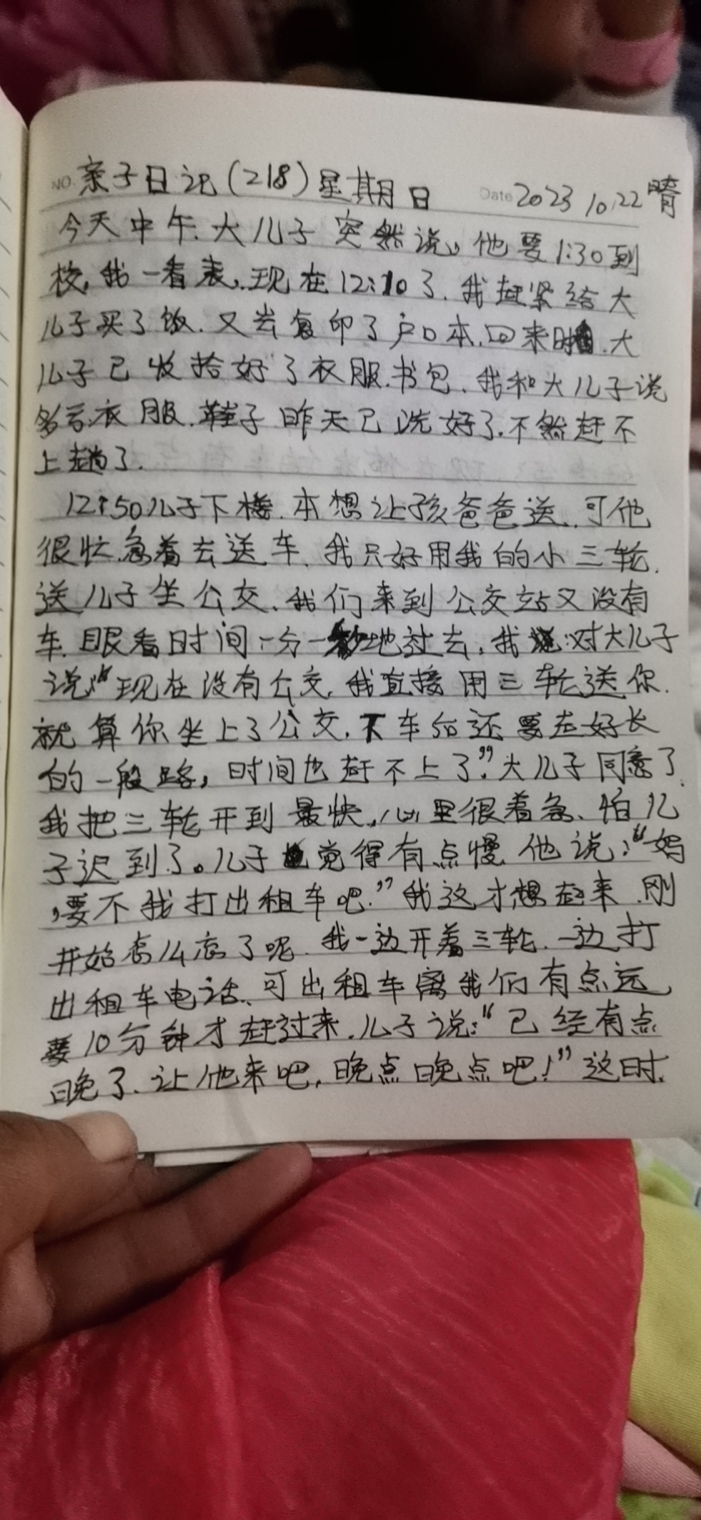 NO. 亲子日记(218)星期日 Date 2023 10.22 晴
今天中午.大儿子突然说,他要1:30到
校,我一看表,现在12:10了.我赶紧给大
儿子买了饭.又去复印了户口本.回来时.大
儿子已收拾好了衣服.书包.我和大儿子说
多亏衣服.鞋子昨天已洗好了.不然赶不
上趟了.
12:50儿子下楼.本想让孩爸爸送.可他
很忙急着去送车.我只好用我的小三轮.
送儿子坐公交.我们来到公交站又没有
车.眼看时间一分一秒地过去,我对大儿子
说:“现在没有公交,我直接用三轮送你.
就算你坐上了公交,下车后还要走好长
的一段路,时间也赶不上了”.大儿子同意了.
我把三轮开到最快,心里很着急、怕儿
子迟到了。儿子觉得有点慢.他说:“妈
,要不我打出租车吧.”我这才想起来.刚
开始怎么忘了呢.我一边开着三轮.一边打
出租车电话、可出租车离我们有点远
要10分钟才赶过来.儿子说:“已经有点
晚了.让他来吧,晚点晚点吧!”这时.